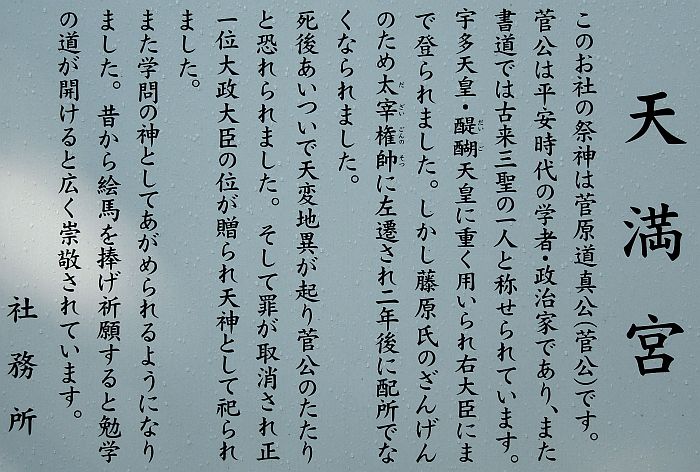 天満宮
このお社の祭神は菅原道真公(菅公)です。
菅公は平安時代の学者・政治家であり、また
書道では古来三聖の一人と称せられています。
宇多天皇・醍醐天皇に重く用いられ右大臣にま
で登られました。しかし藤原氏のざんげん
のため太宰権帥に左遷され二年後に配所でな
くなられました。
死後あいついで天変地異が起り菅公のたたり
と恐れられました。そして罪が取消され正
一位大政大臣の位が贈られ天神として祀られ
ました。
また学問の神としてあがめられるようになり
ました。昔から絵馬を捧げ祈願すると勉学
の道が開けると広く崇敬されています。
社務所